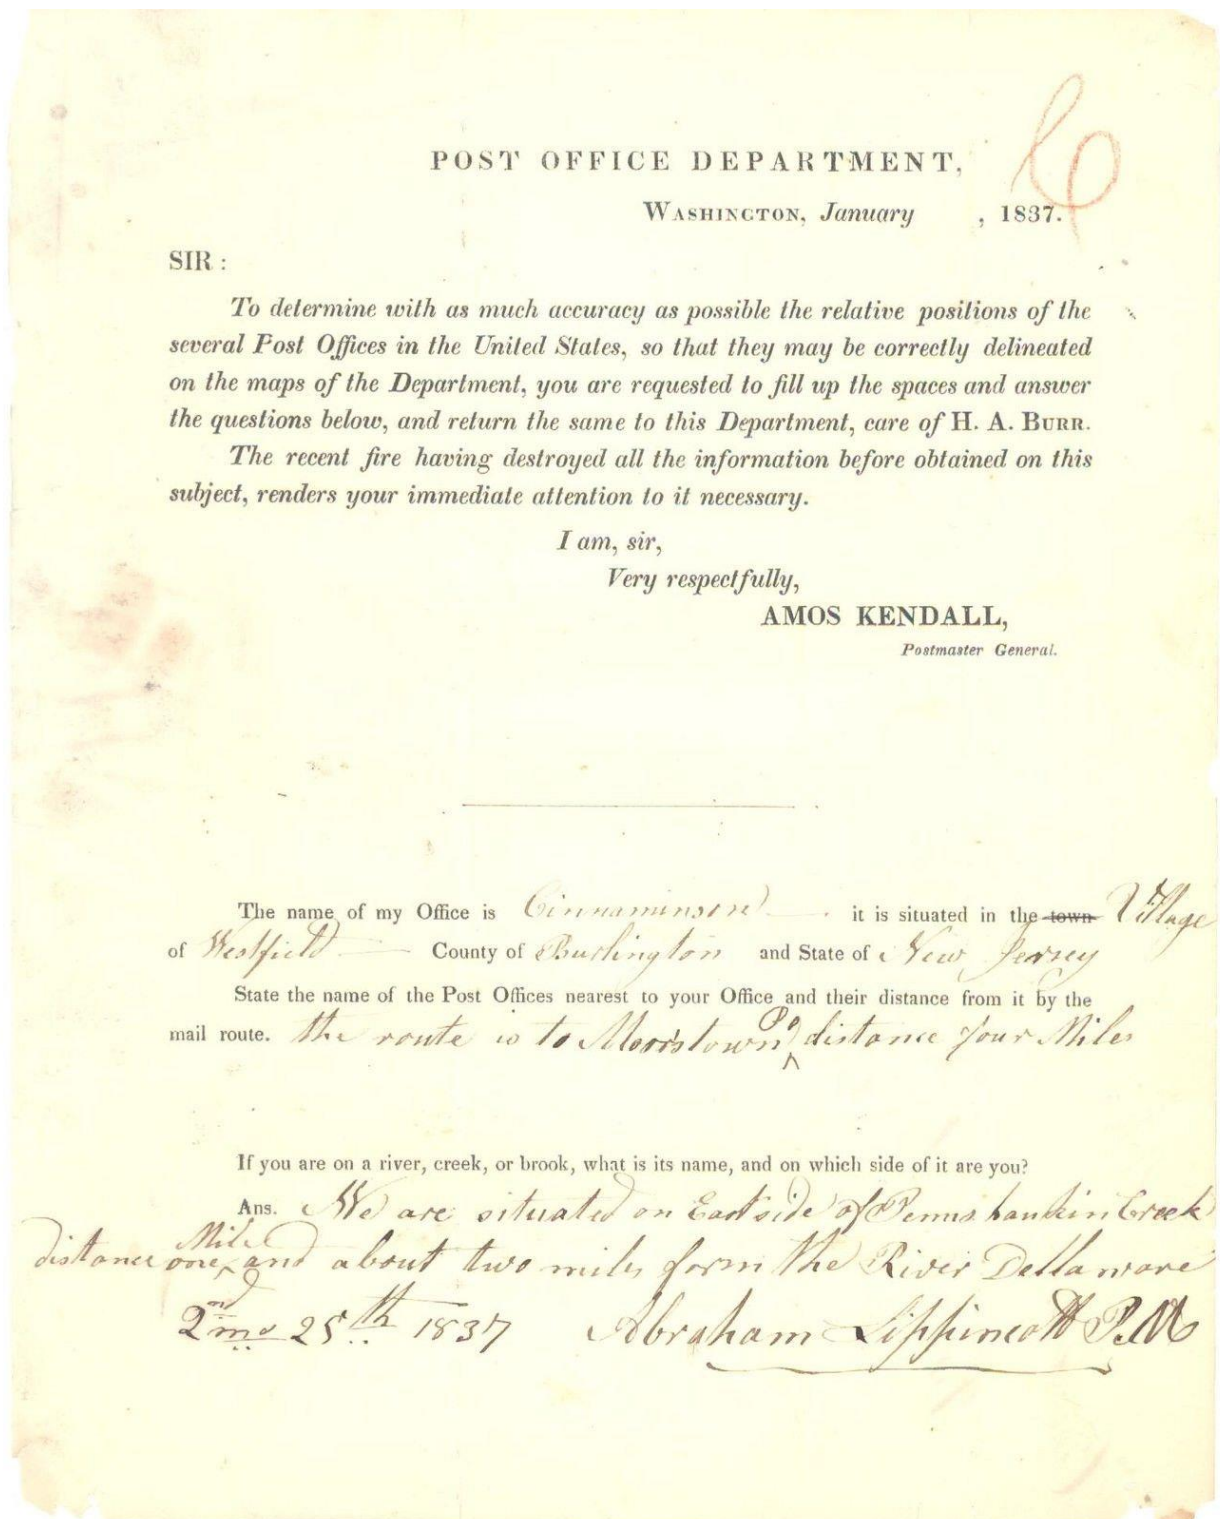 POST OFFICE DEPARTMENT,
WASHINGTON, January , 1837.
SIR :
To determine with as much accuracy as possible the relative positions of the
several Post Offices in the United States, so that they may be correctly delineated
on the maps of the Department, you are requested to fill up the spaces and answer
the questions below, and return the same to this Department, care of H. A. BURR.
The recent fire having destroyed all the information before obtained on this
subject, renders your immediate attention to it necessary.
I am, sir,
Very respectfully,
AMOS KENDALL,
Postmaster General.
The name of my Office is Cinnaminson it is situated in the town Village
of Westfield County of Burlington and State of New Jersey
State the name of the Post Offices nearest to your Office and their distance from it by the
mail route. the route is to Morristown Po distance four Miles
If you are on a river, creek, or brook, what is its name, and on which side of it are you?
Ans. We are situated on East side of Pennshaukin Creek
distance one Mile and about two miles form the River Dellaware
2nd mo 25th 1837 Abraham Lippincott P.M